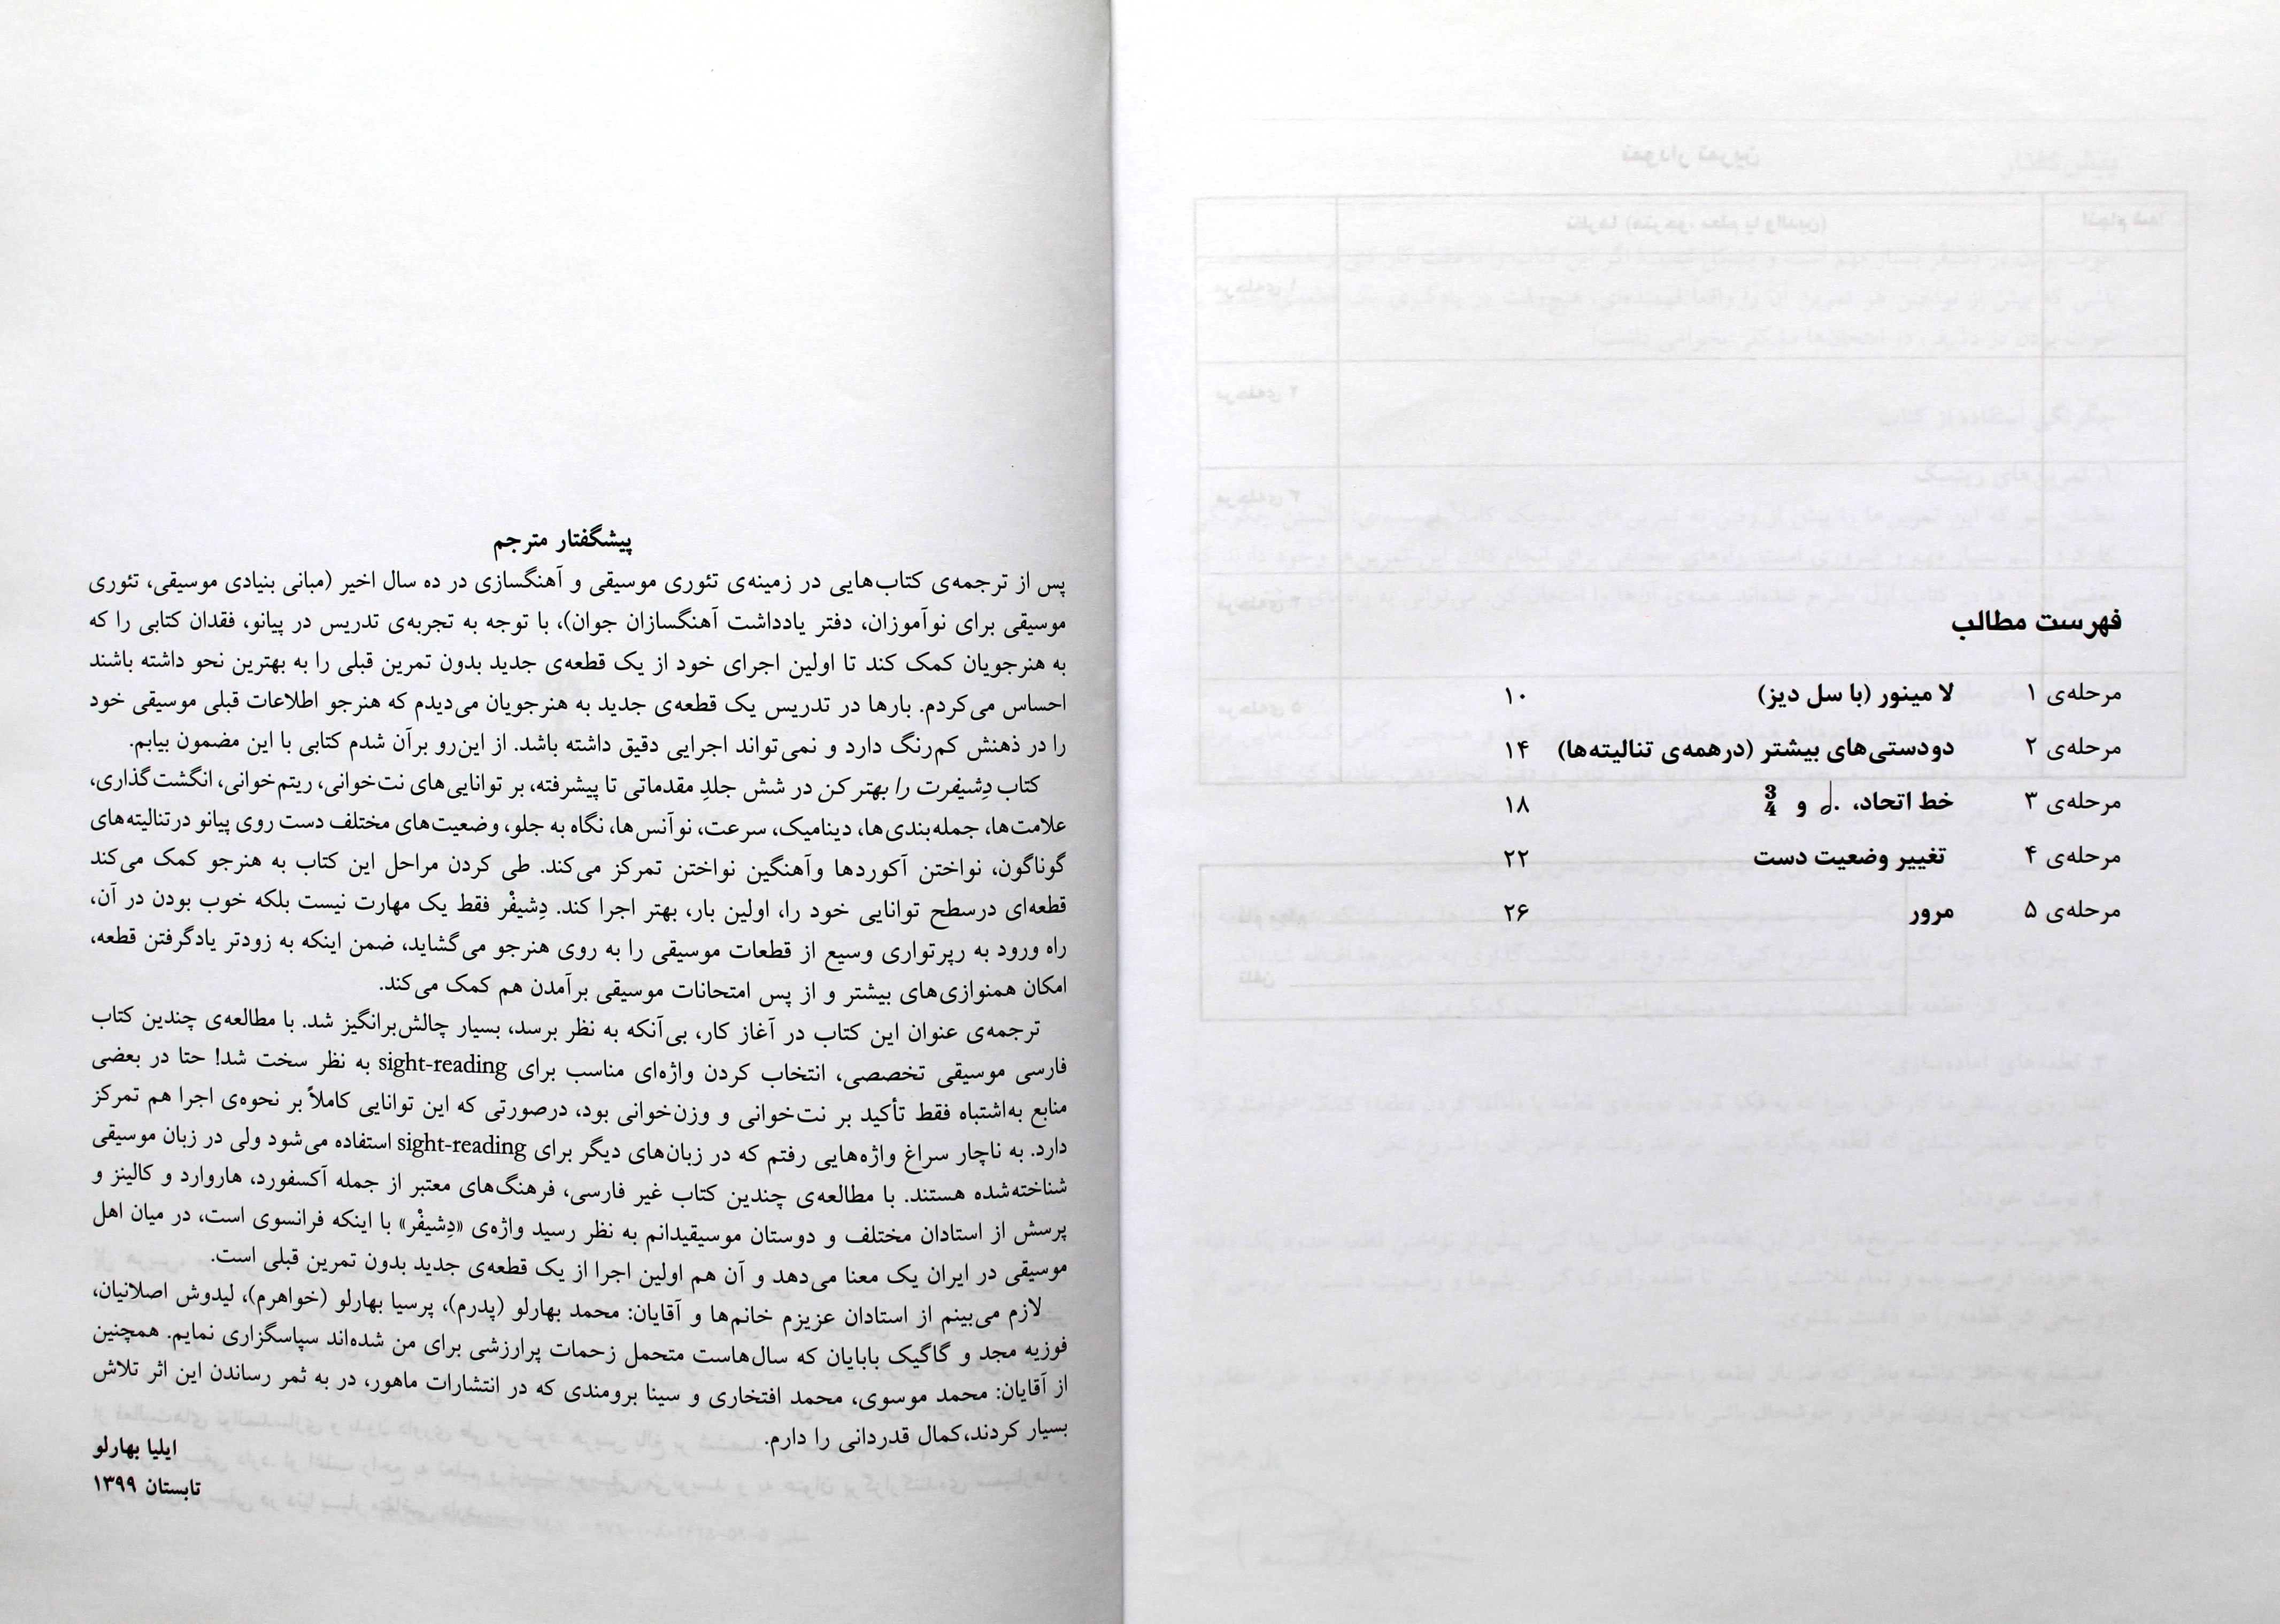 فهرست مطالب
مرحله‌ی ۱ لا مینور (با سل دیز) ۱۰
مرحله‌ی ۲ دودستی‌های بیشتر (درهمه‌ی تنالیته‌ها) ۱۴
مرحله‌ی ۳ خط اتحاد، 𝅗𝅥. و 3/4 ۱۸
مرحله‌ی ۴ تغییر وضعیت دست ۲۲
مرحله‌ی ۵ مرور ۲۶
پیشگفتار مترجم
پس از ترجمه‌ی کتاب‌هایی در زمینه‌ی تئوری موسیقی و آهنگسازی در ده سال اخیر (مبانی بنیادی موسیقی، تئوری
موسیقی برای نوآموزان، دفتر یادداشت آهنگسازان جوان)، با توجه به تجربه‌ی تدریس در پیانو، فقدان کتابی را که
به هنرجویان کمک کند تا اولین اجرای خود از یک قطعه‌ی جدید بدون تمرین قبلی را به بهترین نحو داشته باشند
احساس می‌کردم. بارها در تدریس یک قطعه‌ی جدید به هنرجویان می‌دیدم که هنرجو اطلاعات قبلی موسیقی خود
را در ذهنش کم‌رنگ دارد و نمی‌تواند اجرایی دقیق داشته باشد. از این‌رو برآن شدم کتابی با این مضمون بیابم.
کتاب دِشیفرت را بهتر کن در شش جلدِ مقدماتی تا پیشرفته، بر توانایی‌های نت‌خوانی، ریتم‌خوانی، انگشت‌گذاری،
علامت‌ها، جمله‌بندی‌ها، دینامیک، سرعت، نوآنس‌ها، نگاه به جلو، وضعیت‌های مختلف دست روی پیانو درتنالیته‌های
گوناگون، نواختن آکوردها وآهنگین نواختن تمرکز می‌کند. طی کردن مراحل این کتاب به هنرجو کمک می‌کند
قطعه‌ای درسطح توانایی خود را، اولین بار، بهتر اجرا کند. دِشیفْر فقط یک مهارت نیست بلکه خوب بودن در آن،
راه ورود به رپرتواری وسیع از قطعات موسیقی را به روی هنرجو می‌گشاید، ضمن اینکه به زودتر یادگرفتن قطعه،
امکان همنوازی‌های بیشتر و از پس امتحانات موسیقی برآمدن هم کمک می‌کند.
ترجمه‌ی عنوان این کتاب در آغاز کار، بی‌آنکه به نظر برسد، بسیار چالش‌برانگیز شد. با مطالعه‌ی چندین کتاب
فارسی موسیقی تخصصی، انتخاب کردن واژه‌ای مناسب برای sight-reading به نظر سخت شد! حتا در بعضی
منابع به‌اشتباه فقط تأکید بر نت‌خوانی و وزن‌خوانی بود، درصورتی که این توانایی کاملاً بر نحوه‌ی اجرا هم تمرکز
دارد. به ناچار سراغ واژه‌هایی رفتم که در زبان‌های دیگر برای sight-reading استفاده می‌شود ولی در زبان موسیقی
شناخته‌شده هستند. با مطالعه‌ی چندین کتاب غیر فارسی، فرهنگ‌های معتبر از جمله آکسفورد، هاروارد و کالینز و
پرسش از استادان مختلف و دوستان موسیقیدانم به نظر رسید واژه‌ی «دِشیفْر» با اینکه فرانسوی است، در میان اهل
موسیقی در ایران یک معنا می‌دهد و آن هم اولین اجرا از یک قطعه‌ی جدید بدون تمرین قبلی است.
لازم می‌بینم از استادان عزیزم خانم‌ها و آقایان: محمد بهارلو (پدرم)، پرسیا بهارلو (خواهرم)، لیدوش اصلانیان،
فوزیه مجد و گاگیک بابایان که سال‌هاست متحمل زحمات پرارزشی برای من شده‌اند سپاسگزاری نمایم. همچنین
از آقایان: محمد موسوی، محمد افتخاری و سینا برومندی که در انتشارات ماهور، در به ثمر رساندن این اثر تلاش
بسیار کردند،کمال قدردانی را دارم.
ایلیا بهارلو
تابستان ۱۳۹۹